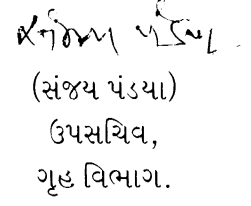 (સંજય પંડયા)
ઉપસચિવ,
ગૃહ વિભાગ.